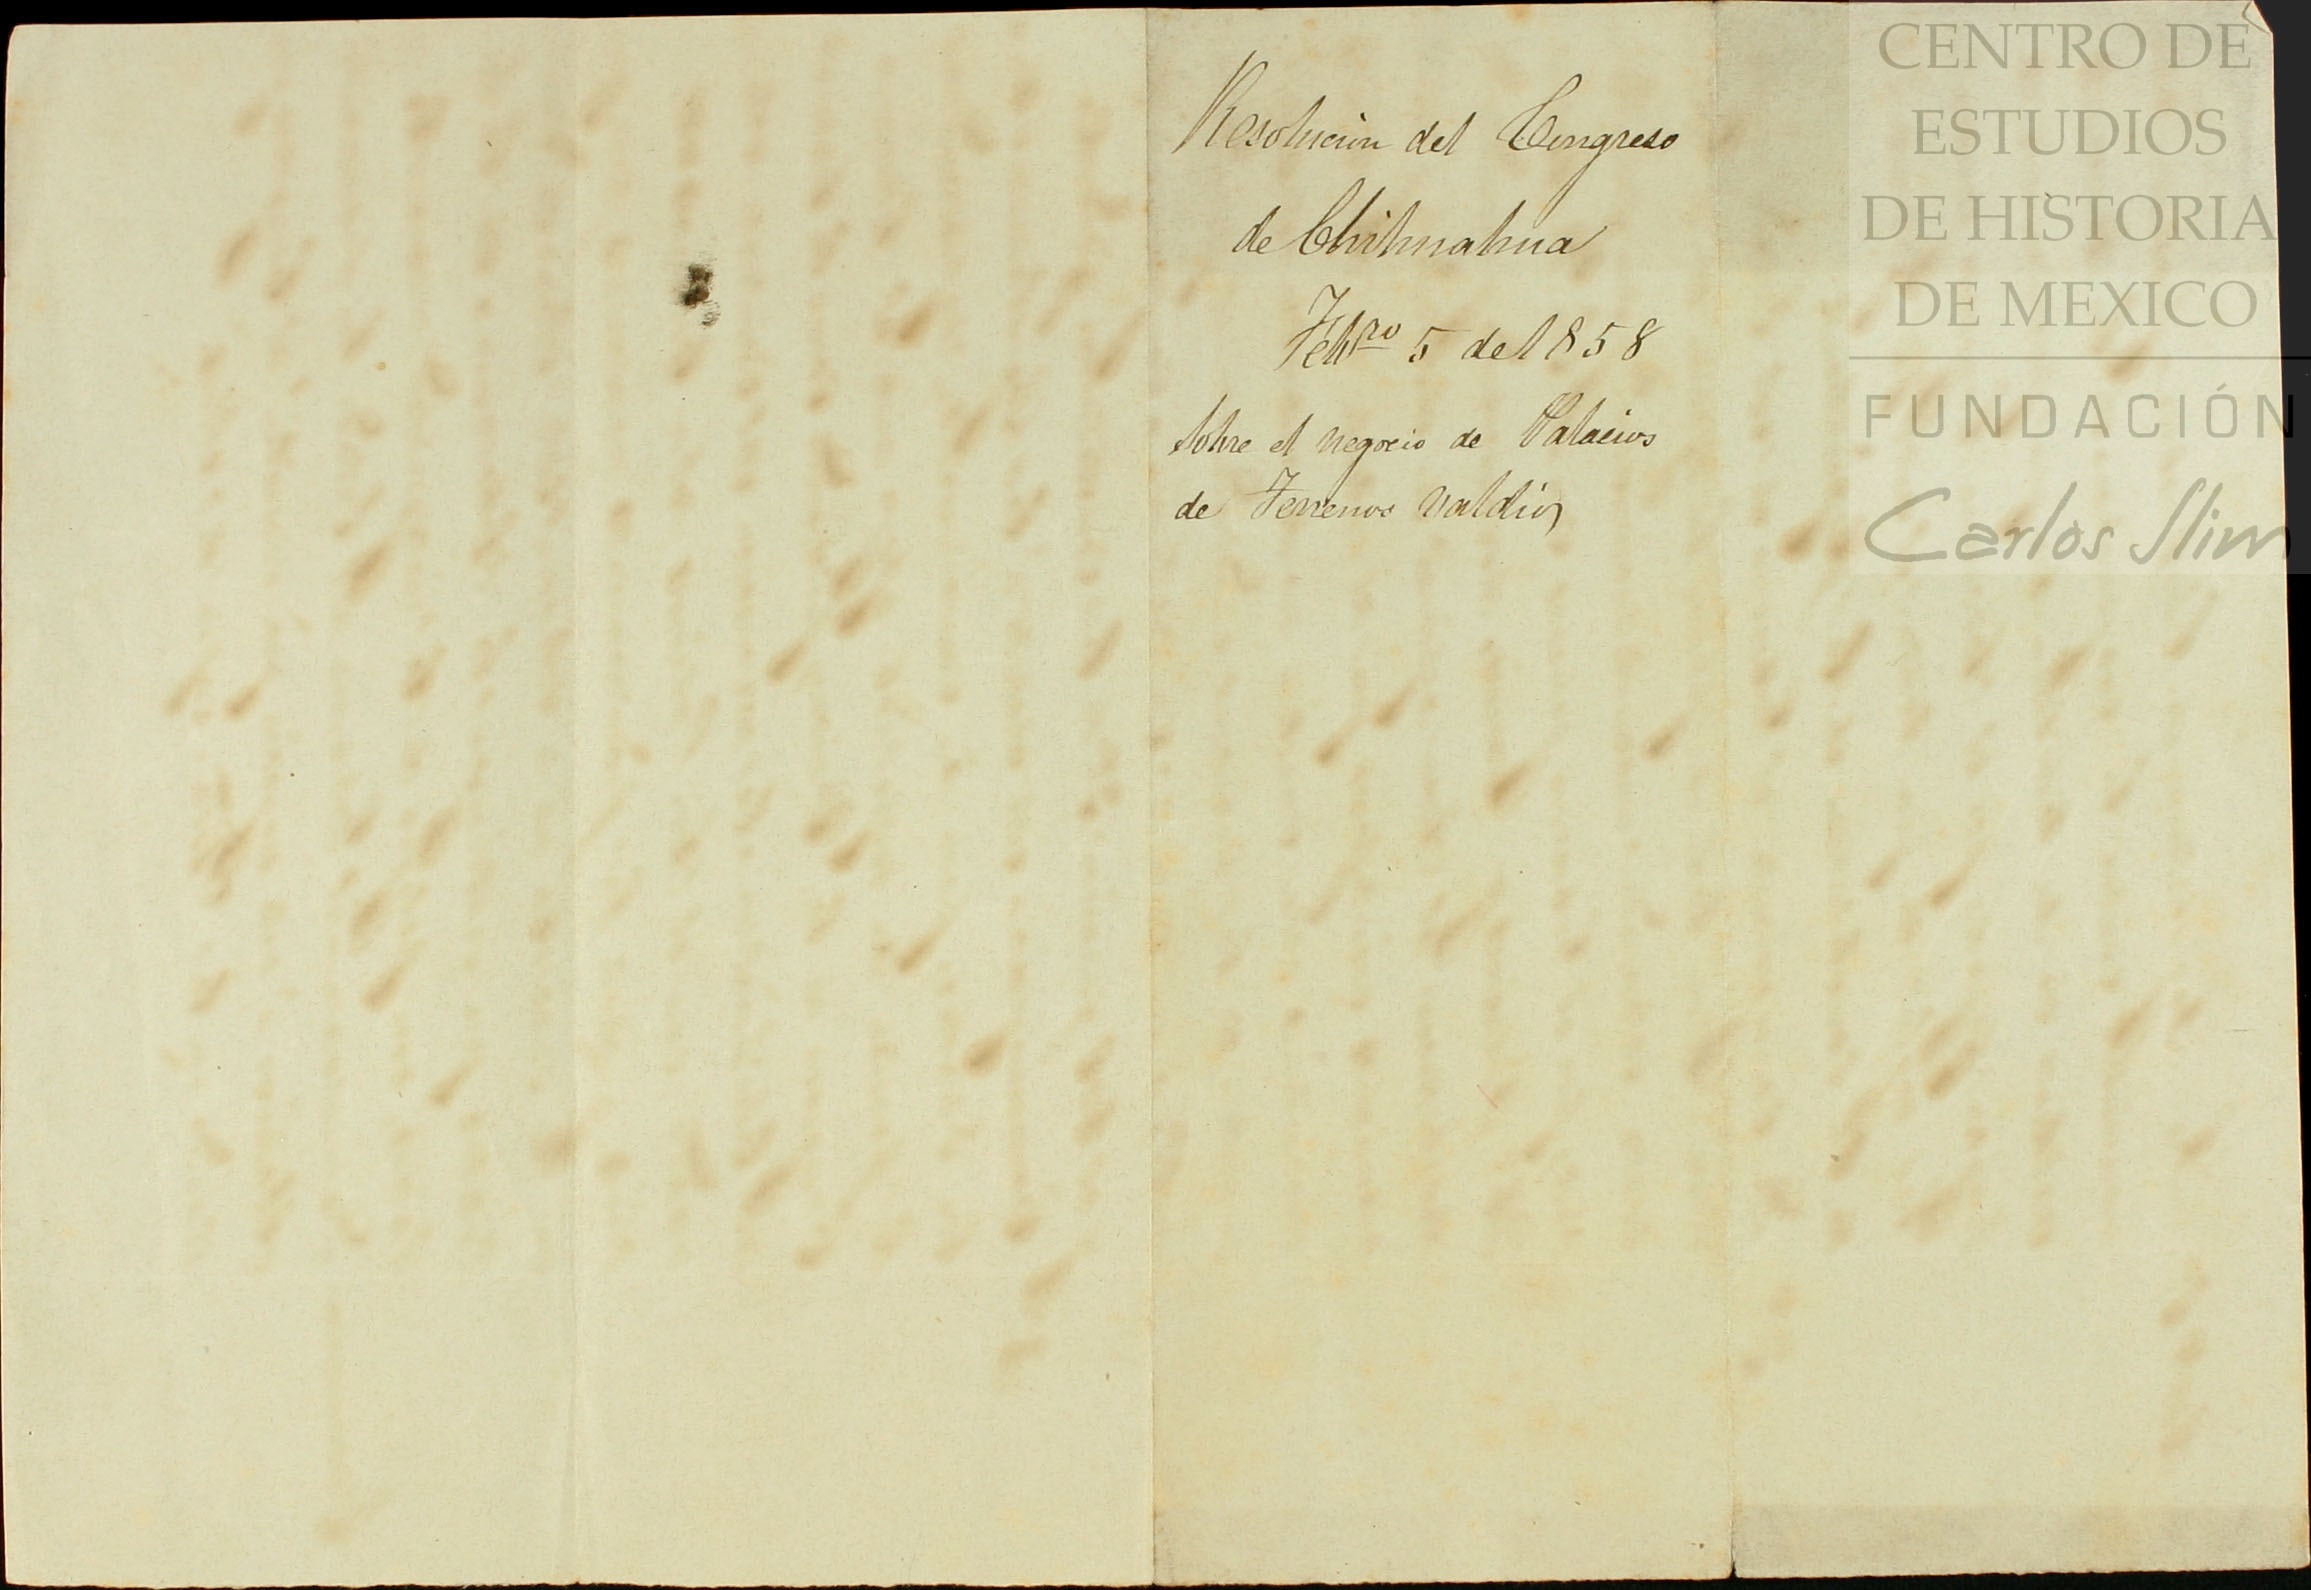 Resolucion del Congreso
de Chihuahua
Febro 5 de 1858
Sobre el negocio de Palacios
de Terrenos valdios
CENTRO DE
ESTUDIOS
DE HISTORIA
DE MEXICO
FUNDACIÓN
Carlos Slim